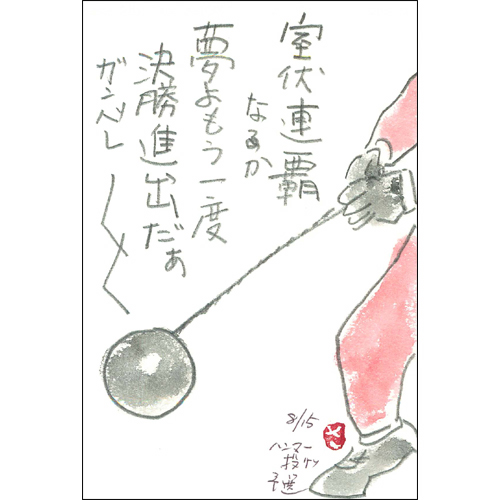 室伏連覇
なるか
夢よもう一度
決勝進出だぁ
ガンバレ〜〜
8/15
ハンマー
投ゲ
予選